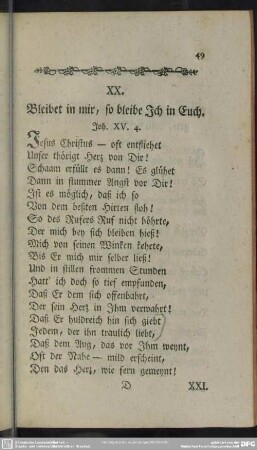 49
XX.
Bleibet in mir, so bleibe Ich in Euch.
Joh. XV. 4.
Jesus Christus — oft entfliehet
Unser thörigt Hertz von Dir!
Schaam erfüllt es dann! Es glühet
Dann in stummer Angst vor Dir!
Ist es möglich, daß ich so
Von dem beßten Hirten floh!
So des Rufers Ruf nicht höhrte,
Der mich bey sich bleiben hieß!
Mich von seinen Winken kehrte,
Bis Er mich mir selber ließ!
Und in stillen frommen Stunden
Hatt' ich doch so tief empfunden,
Daß Er dem sich offenbahrt,
Der sein Hertz in Ihm verwahrt!
Daß Er huldreich hin sich giebt
Jedem, der ihn traulich liebt,
Daß dem Aug, das vor Ihm weynt,
Oft der Nahe — mild erscheint,
Den das Hertz, wie fern gemeynt!
D XXI.